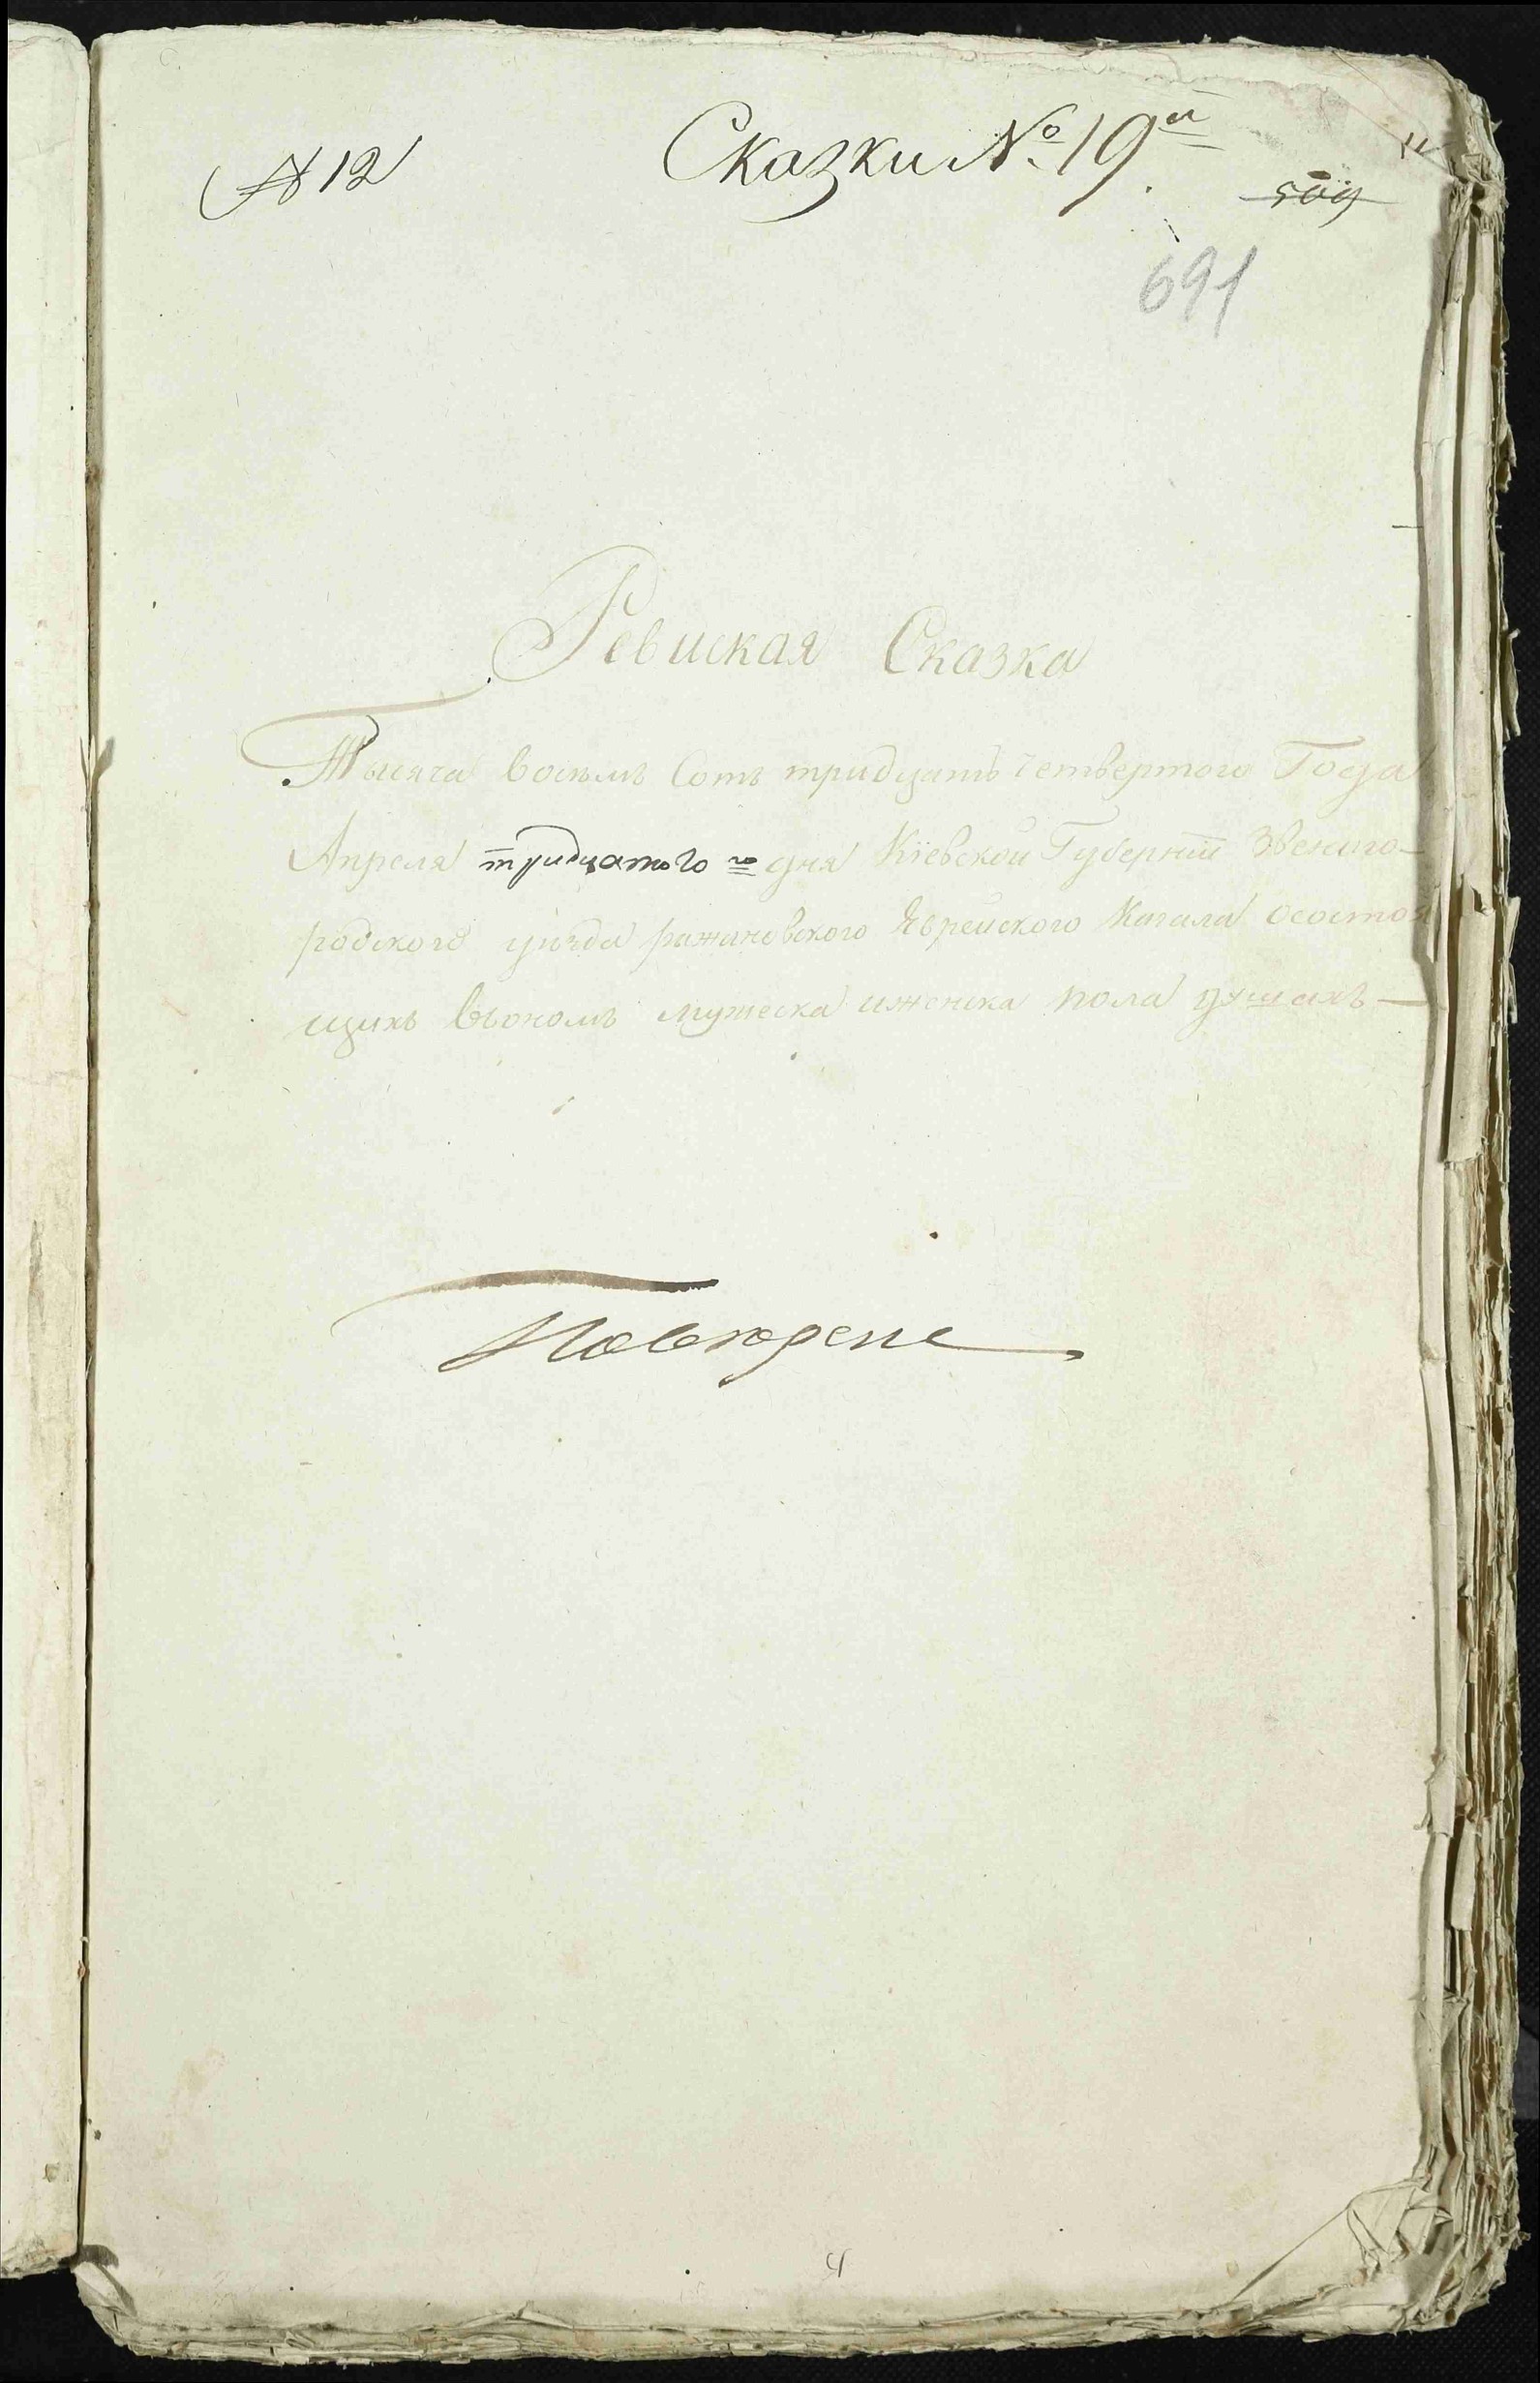 № 12
Сказки № 19й
509
691
Ревиская Сказка
Тысяча восемь Сотъ тридцать четвертого Года
Апреля тридцатого го дня Кіевской Губерніи Звениго-
родского уѣзда ражановского Еврейского Кагала осостоя
щихъ въономъ мужеска иженска пола душахъ —